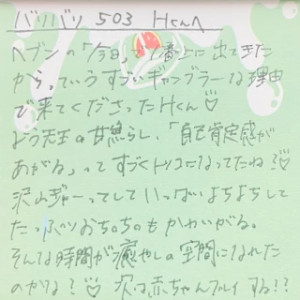 バリバリ 503 Hくんへ
ヘブンの「今日」で1番上に出てきた
から。っていうすごいギャンブラーな理由
で来てくださったHくん♡
よう先生の甘焦らし、「自己肯定感が
あがる」ってすぐトリコになってたね♡
沢山ぎゃーってしていっぱいよちよちして
たっぷりおちちもかわいがる。
そんな時間が癒やしの空間になれた
のかな?♡ 次は赤ちゃんプレイする!?